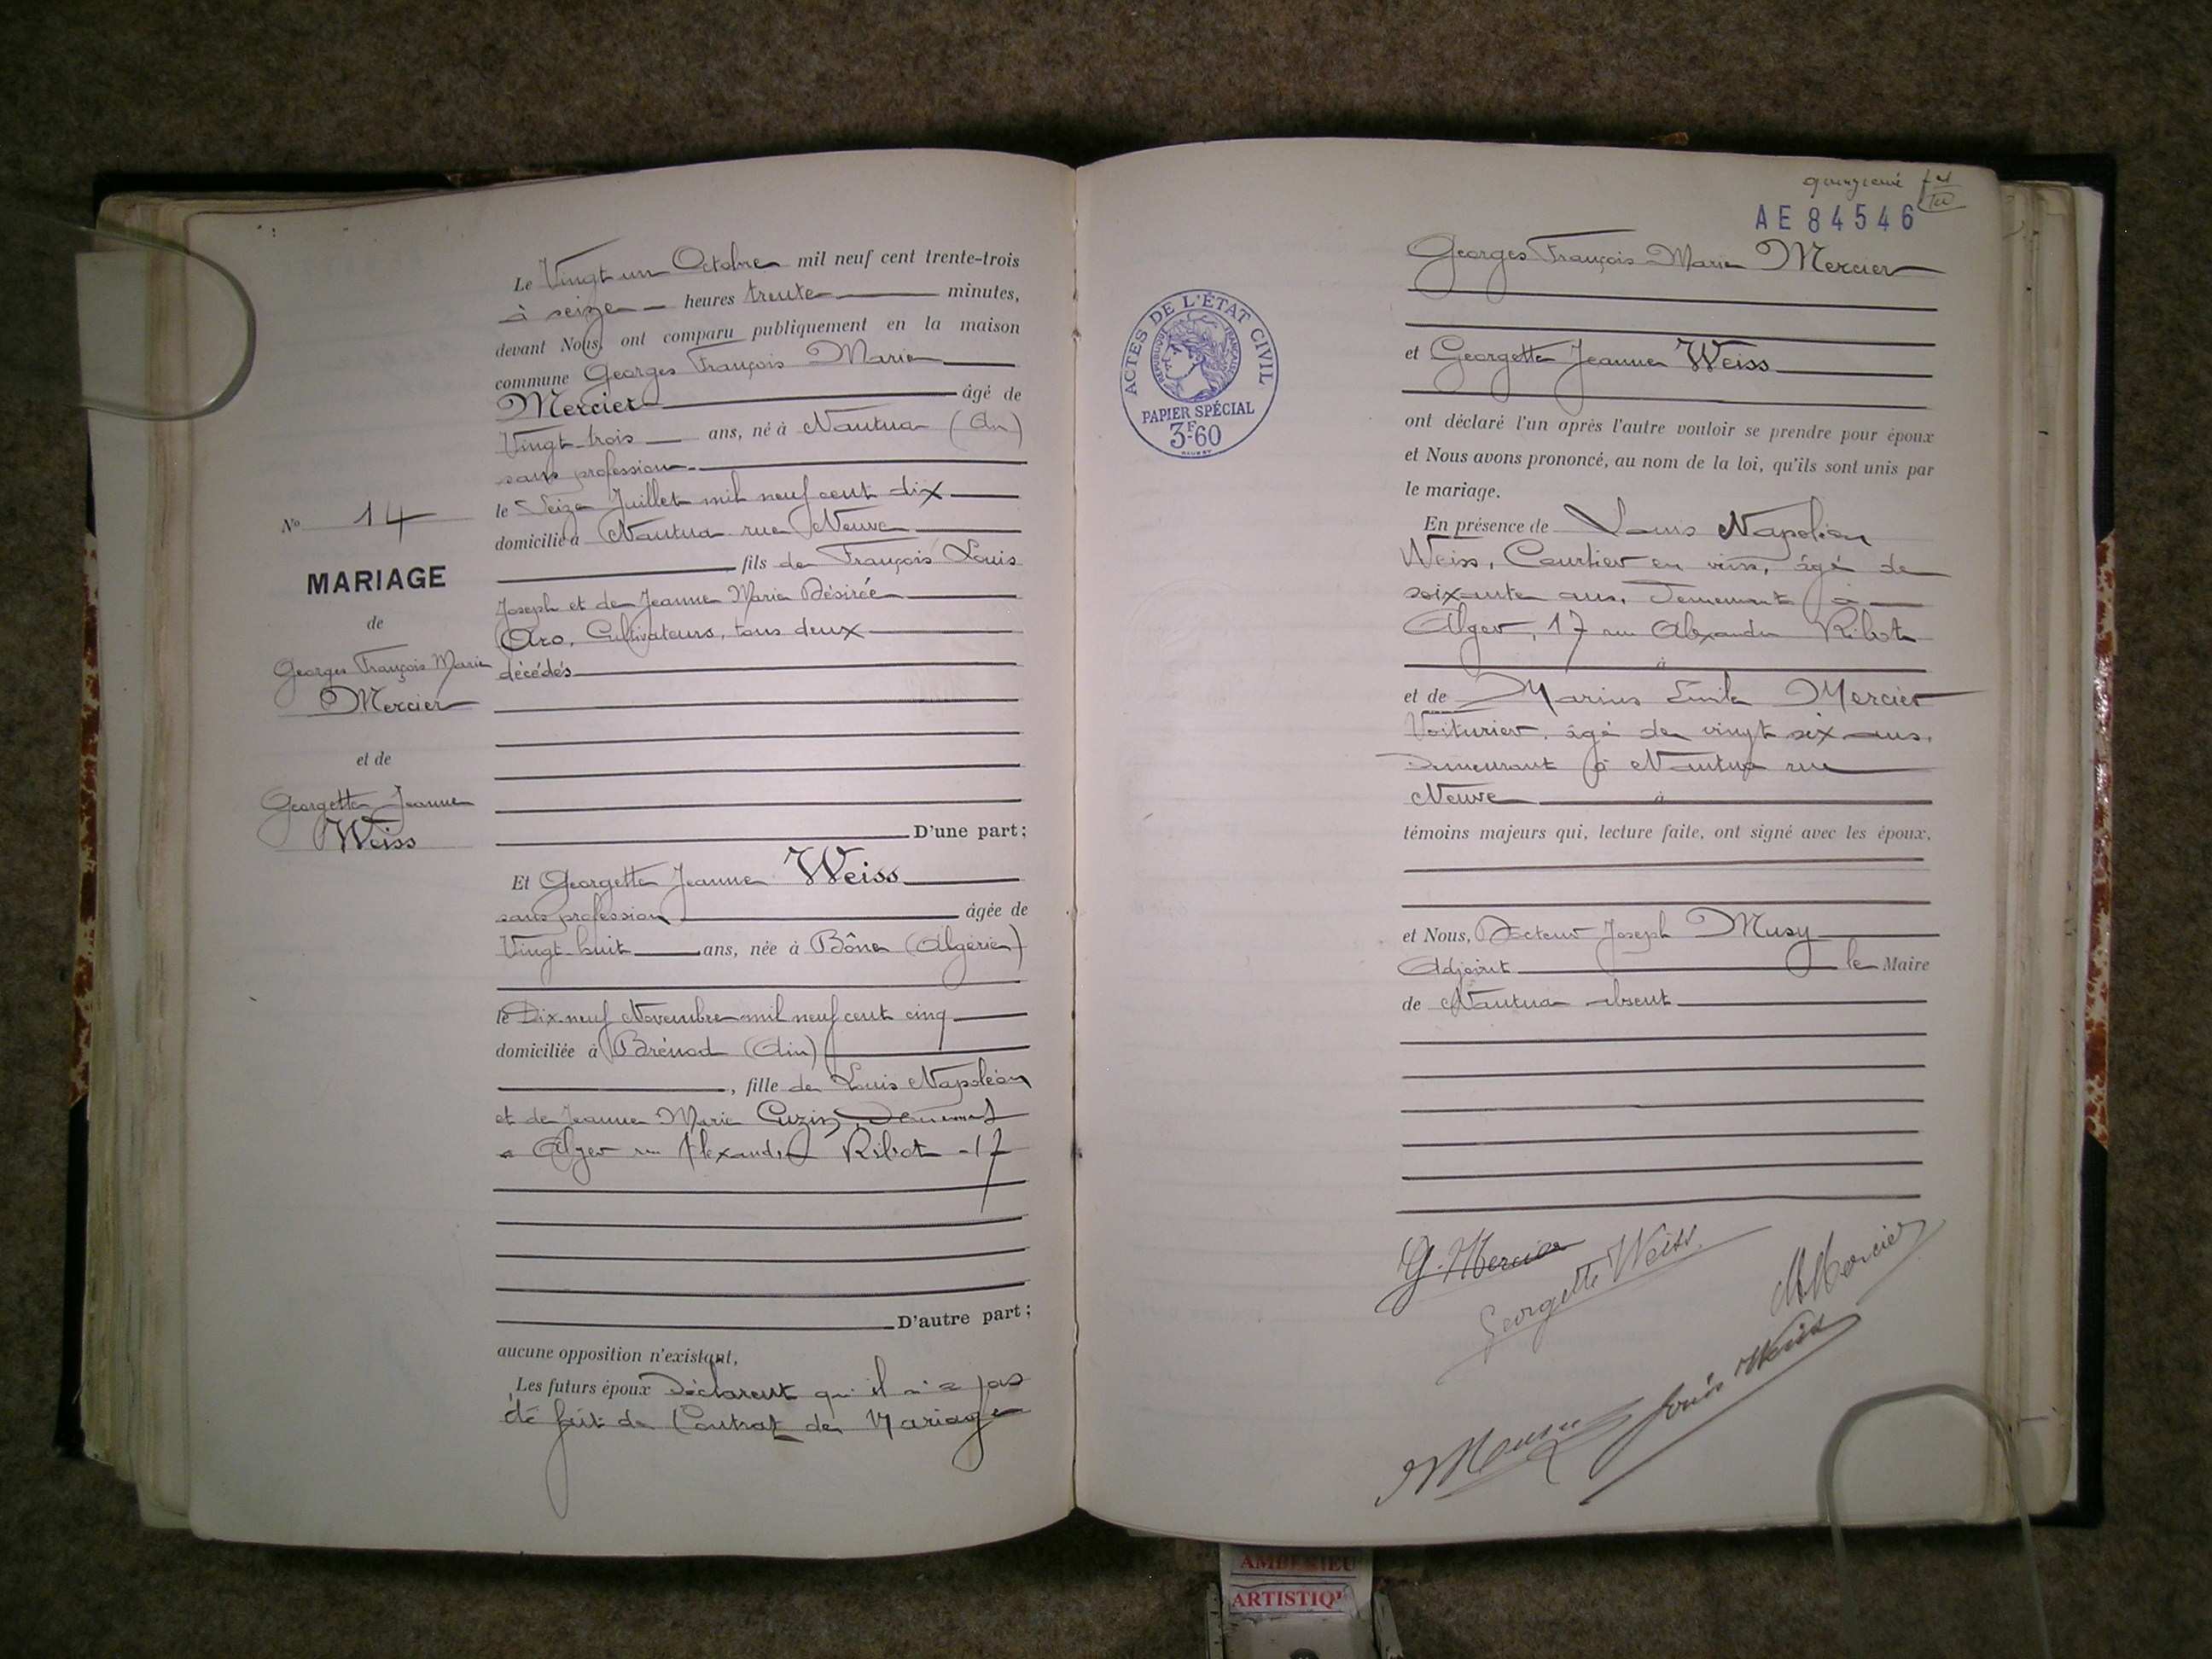 Le Vingt un Octobre mil neuf cent trente-trois
à seize heures trente minutes,
devant Nous, ont comparu publiquement en la maison
commune Georges François Marie
Mercier âgé de
Vingt trois ans, né à Nantua (Ain)
sans profession
le Seize Juillet mil neuf cent dix
domicilié à Nantua rue Neuve
fils de François Louis
Joseph et de Jeanne Marie Désirée
Cultivateurs, tous deux
décédés
D'une part;
Et Georgette Jeanne Weiss
sans profession âgée de
Vingt-huit ans, née à Bône (Algérie)
le Dix-neuf Novembre mil neuf cent cinq
domiciliée à Brénod (Ain)
, fille de Louis Napoléon
et de Jeanne Marie Cuzin, Demeurant
a Alger rue Alexandre Ribot -17
D'autre part;
aucune opposition n'existant,
Les futurs époux Déclarent qu'il n'a pas
été fait de Contrat de Mariage
No 14
MARIAGE
de
Georges François Marie
Mercier
et de
Georgette Jeanne
Weiss
AE84546
ACTES DE L'ÉTAT CIVIL
RÉPUBLIQUE FRANÇAISE
PAPIER SPÉCIAL
3F60
Georges François Marie Mercier
et Georgette Jeanne Weiss
ont déclaré l'un après l'autre vouloir se prendre pour époux
et Nous avons prononcé, au nom de la loi, qu'ils sont unis par
le mariage.
En présence de Louis Napoléon
Weiss, Courtier en vins, âgé de
soixante ans, Demeurant à
Alger, 17 rue Alexandre Ribot
à
et de Marius Emile Mercier
Voiturier, âgé de vingt six ans,
Demeurant à Nantua rue
Neuve à
témoins majeurs qui, lecture faite, ont signé avec les époux.
et Nous, Docteur Joseph Musy
Adjoint le Maire
de Nantua absent
G. Mercier
Georgette Weiss
M Mercier
Louis Weiss
AMBERIEU
ARTISTIQ